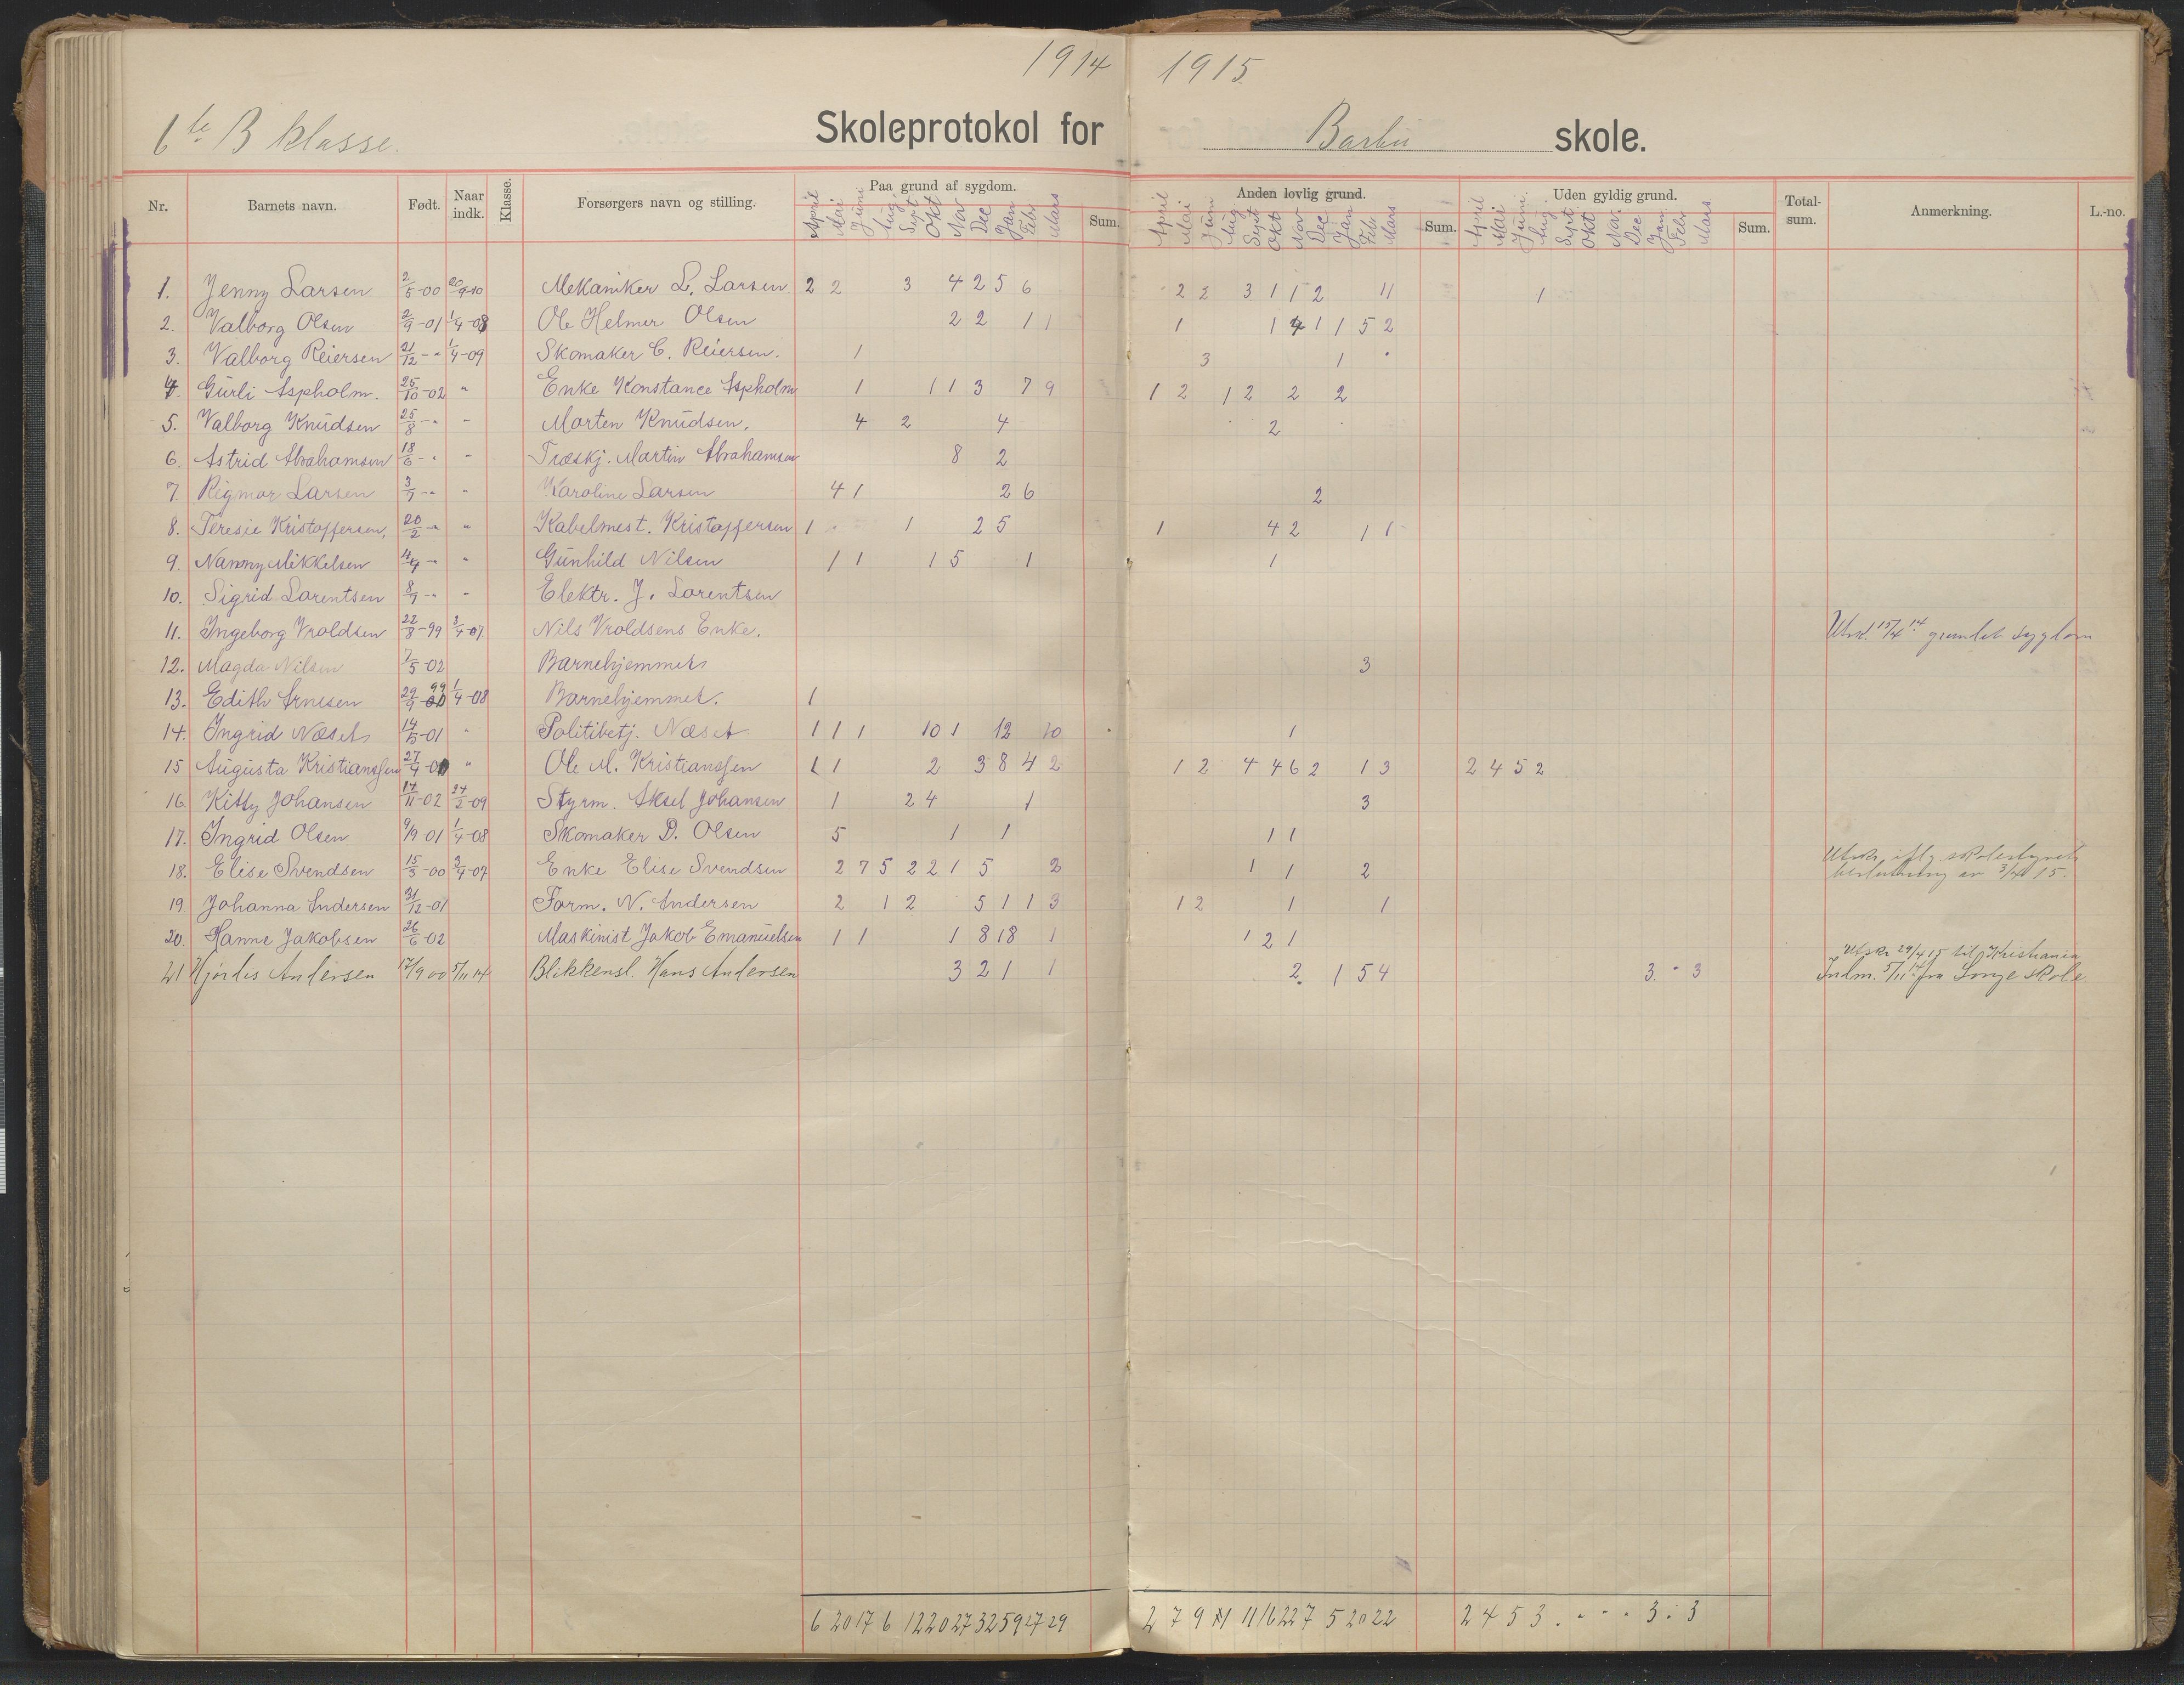 1914 1915
6te B klasse. Skoleprotokol for Barbu skole.
Nr. Barnets navn. Født. Naar indk. Klasse. Forsørgers navn og stilling. Paa grund af sygdom. Sum. Anden lovlig grund. Sum. Uden gyldig grund. Sum. Total-sum. Anmerkning. L.-no.
April Mai Juni Aug. Sept Okt Nov Dec Jan Feb. Mars April Mai Juni Aug Sept Okt Nov Dec Jan Feb. Mars April Mai Juni Aug. Sept. Okt Nov. Dec Jan Feb Mars
1. Jenny Larsen 2/5-00 20/9-10 Mekaniker L. Larsen 2 2 3 4 2 5 6 2 2 3 1 1 2 11 1
2. Valborg Olsen 2/9-01 1/4-08 Ole Helmer Olsen 2 2 1 1 1 1 4 1 1 5 2
3. Valborg Reiersen 21/12-" 1/4-09 Skomaker C. Reiersen. 1 3 1 "
4. Gurli Aspholm. 25/10-02 " Enke Konstance Aspholm 1 1 1 3 7 9 1 2 1 2 2 2
5. Valborg Knudsen 25/8-" " Morten Knudsen. 4 2 4 2
6. Astrid Abrahamsen 18/6-" " Træskj. Martin Abrahamsen 8 2
7. Rigmor Larsen 3/7-" " Karoline Larsen 4 1 2 6 2
8. Teresie Kristoffersen, 20/2-" " Kabelmest. Kristoffersen 1 1 2 5 1 4 2 1 1
9. Nanny Mikkelsen 4/4-" " Gunhild Nilsen 1 1 1 5 1 1
10. Sigrid Lorentsen 8/7-" " Elektr. J. Lorentsen
11. Ingeborg Vroldsen 22/8-99 3/4-07 Nils Vroldsens Enke. Utsk. 15/4 14
12. Magda Nilsen 7/5-02 Barnehjemmet 3
13. Edith Arnesen 29/9 99 1/4-08 Barnehjemmet. 1
14. Ingrid Næset 14/5-01 " Politibetj. Næset 1 1 1 10 1 12 10 1
15 Augusta Kristianssen 27/4-01 " Ole M. Kristianssen 1 1 2 3 8 4 2 1 2 4 4 6 2 1 3 2 4 5 2
16. Kitty Johansen 14/11-02 24/2-09 Styrm. Aksel Johansen 1 2 4 1 3
17. Ingrid Olsen 9/9 01 1/4-08 Skomaker D. Olsen 5 1 1 1 1
18. Elise Svendsen 15/3-00 3/4-07 Enke Elise Svendsen 2 7 5 2 2 1 5 2 1 1 2 Utskr. iflg. skolestyrets
beslutning av 3/4 15.
19. Johanna Andersen 31/12-01 Form. N. Andersen 2 1 2 5 1 1 3 1 2 1 1
20. Hanne Jakobsen 26/6-02 Maskinist Jakob Emanuelsen 1 1 1 8 18 1 1 2 1
Utskr 29/4 15 til Kristiania
21 Hjørdis Andersen 17/9 00 5/11 14 Blikkensl. Hans Andersen 3 2 1 1 2. 1 5 4 3. " 3 Indm. 5/11 14 fra Songe skole
6 20 17 6 12 20 27 32 59 27 29 2 7 9 11 11 16 22 7 5 20 22 2 4 5 3 . " " " 3 . 3